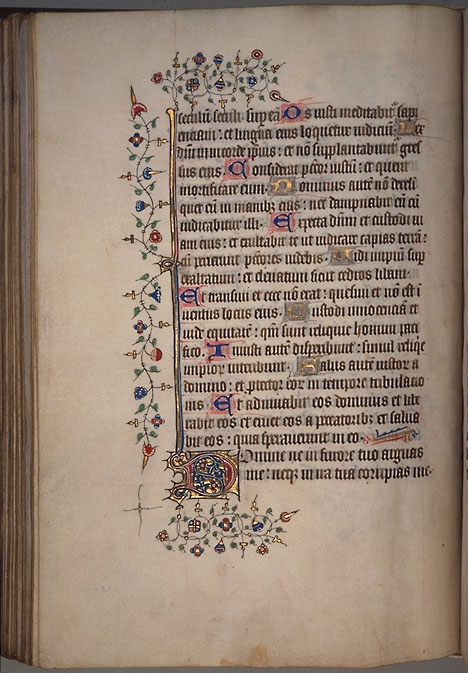 seculū seculi. sup eā Os iusti meditabit̄ sapi
entiam: et lingua eius loquetur iudiciū. Lex
in corde ipsius: et nō supplantabunt̄ gres
sus eius. Considerat pctor iustū: et querit
mortificare eum. Dominus autē nō dereli
quet eū in manibz eius: nec dampnabit eū cū
iudicabitur illi. Expecta dn̄m et custodi ui
am eius: et exaltabit te ut iudicare capias terrā:
cū perierint pctores uidebis. Vidi impiū sup
exaltatum: et eleuatum sicut cedros libani.
Et transiui et ecce nō erat: quesiui et nō est ī
uentus locus eius. Custodi innocentiā et
uide equitatē: qm̄ sunt reliquie homini paci
fico. Iniusti autē disperibunt: simul reliqie
impior interibunt. Salus autē iustor a
domino: et ptector eor in tempore tribulatio
nis. Et adiuuabit eos dominus et libe
rabit eos et eruet eos a peccatoribz et salua
bit eos: quia sperauerunt in eo.
Domine ne in furore tuo arguas
me: neqz in ira tua corripias me.